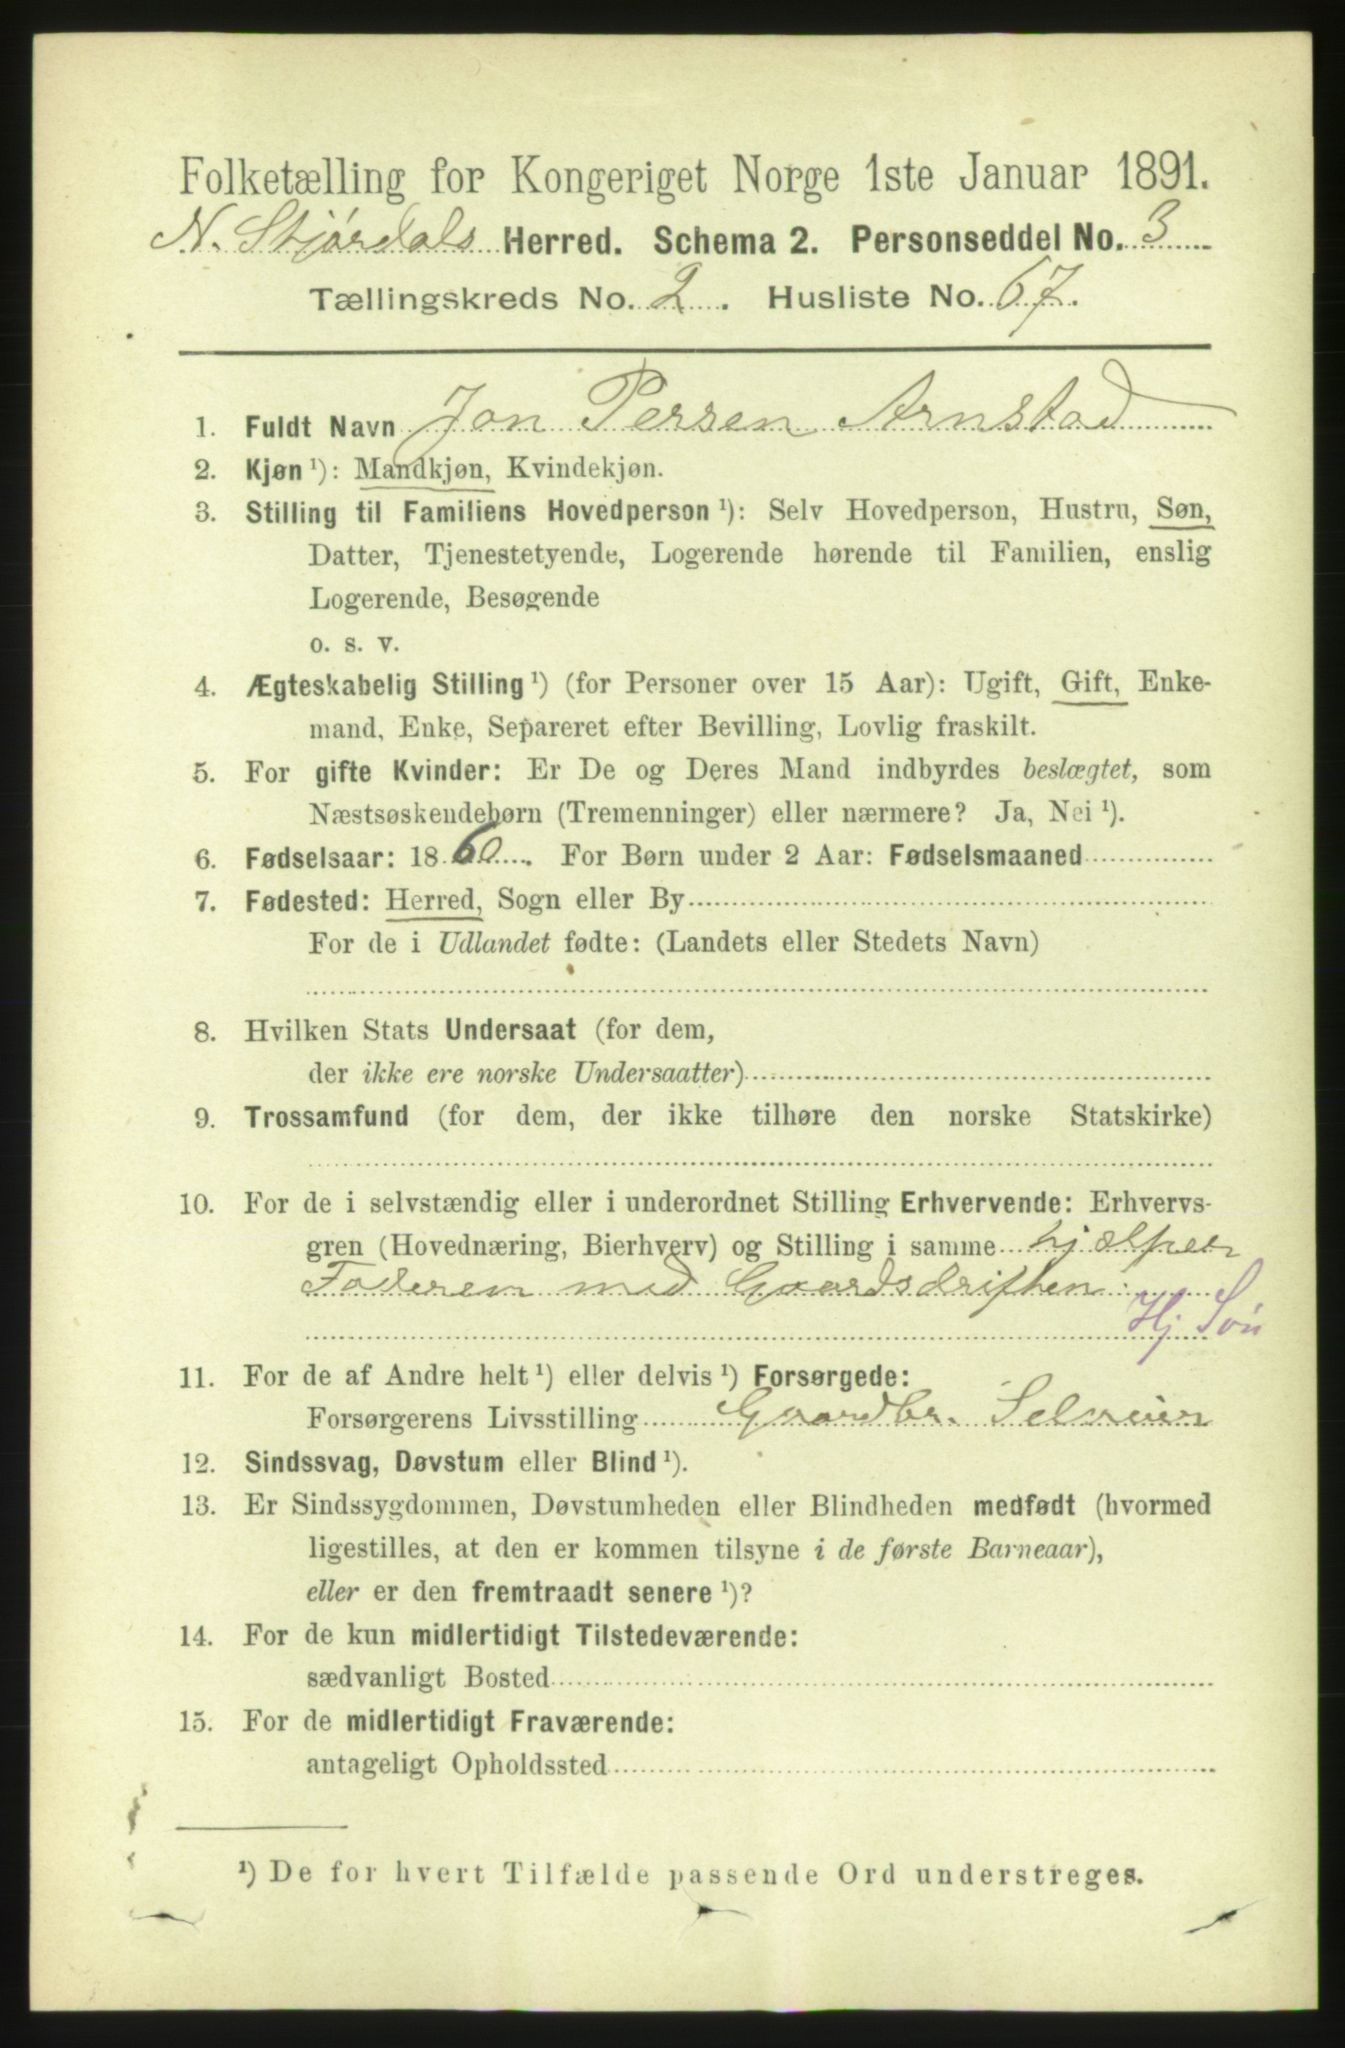 Folketælling for Kongeriget Norge 1ste Januar 1891.
N. Stjørdals Herred. Schema 2. Personseddel No. 3
Tællingskreds No. 2. Husliste No. 67.
1. Fuldt Navn Jon Persen Arnstad
2. Kjøn ¹): Mandkjøn, Kvindekjøn.
3. Stilling til Familiens Hovedperson ¹): Selv Hovedperson, Hustru, Søn,
Datter, Tjenestetyende, Logerende hørende til Familien, enslig
Logerende, Besøgende
o. s. v.
4. Ægteskabelig Stilling ¹) (for Personer over 15 Aar): Ugift, Gift, Enke-
mand, Enke, Separeret efter Bevilling, Lovlig fraskilt.
5. For gifte Kvinder: Er De og Deres Mand indbyrdes beslægtet, som
Næstsøskendebørn (Tremenninger) eller nærmere? Ja, Nei ¹).
6. Fødselsaar: 1860. For Børn under 2 Aar: Fødselsmaaned
7. Fødested: Herred, Sogn eller By
For de i Udlandet fødte: (Landets eller Stedets Navn)
8. Hvilken Stats Undersaat (for dem,
der ikke ere norske Undersaatter)
9. Trossamfund (for dem, der ikke tilhøre den norske Statskirke)
10. For de i selvstændig eller i underordnet Stilling Erhvervende: Erhvervs-
gren (Hovednæring, Bierhverv) og Stilling i samme hjælper
Faderen med Gaardsdriften
Hj Søn
11. For de af Andre helt ¹) eller delvis ¹) Forsørgede:
Forsørgerens Livsstilling Gaardbr. Selveier
12. Sindssvag, Døvstum eller Blind ¹).
13. Er Sindssygdommen, Døvstumheden eller Blindheden medfødt (hvormed
ligestilles, at den er kommen tilsyne i de første Barneaar),
eller er den fremtraadt senere ¹)?
14. For de kun midlertidigt Tilstedeværende:
sædvanligt Bosted
15. For de midlertidigt Fraværende:
antageligt Opholdssted
¹) De for hvert Tilfælde passende Ord understreges.